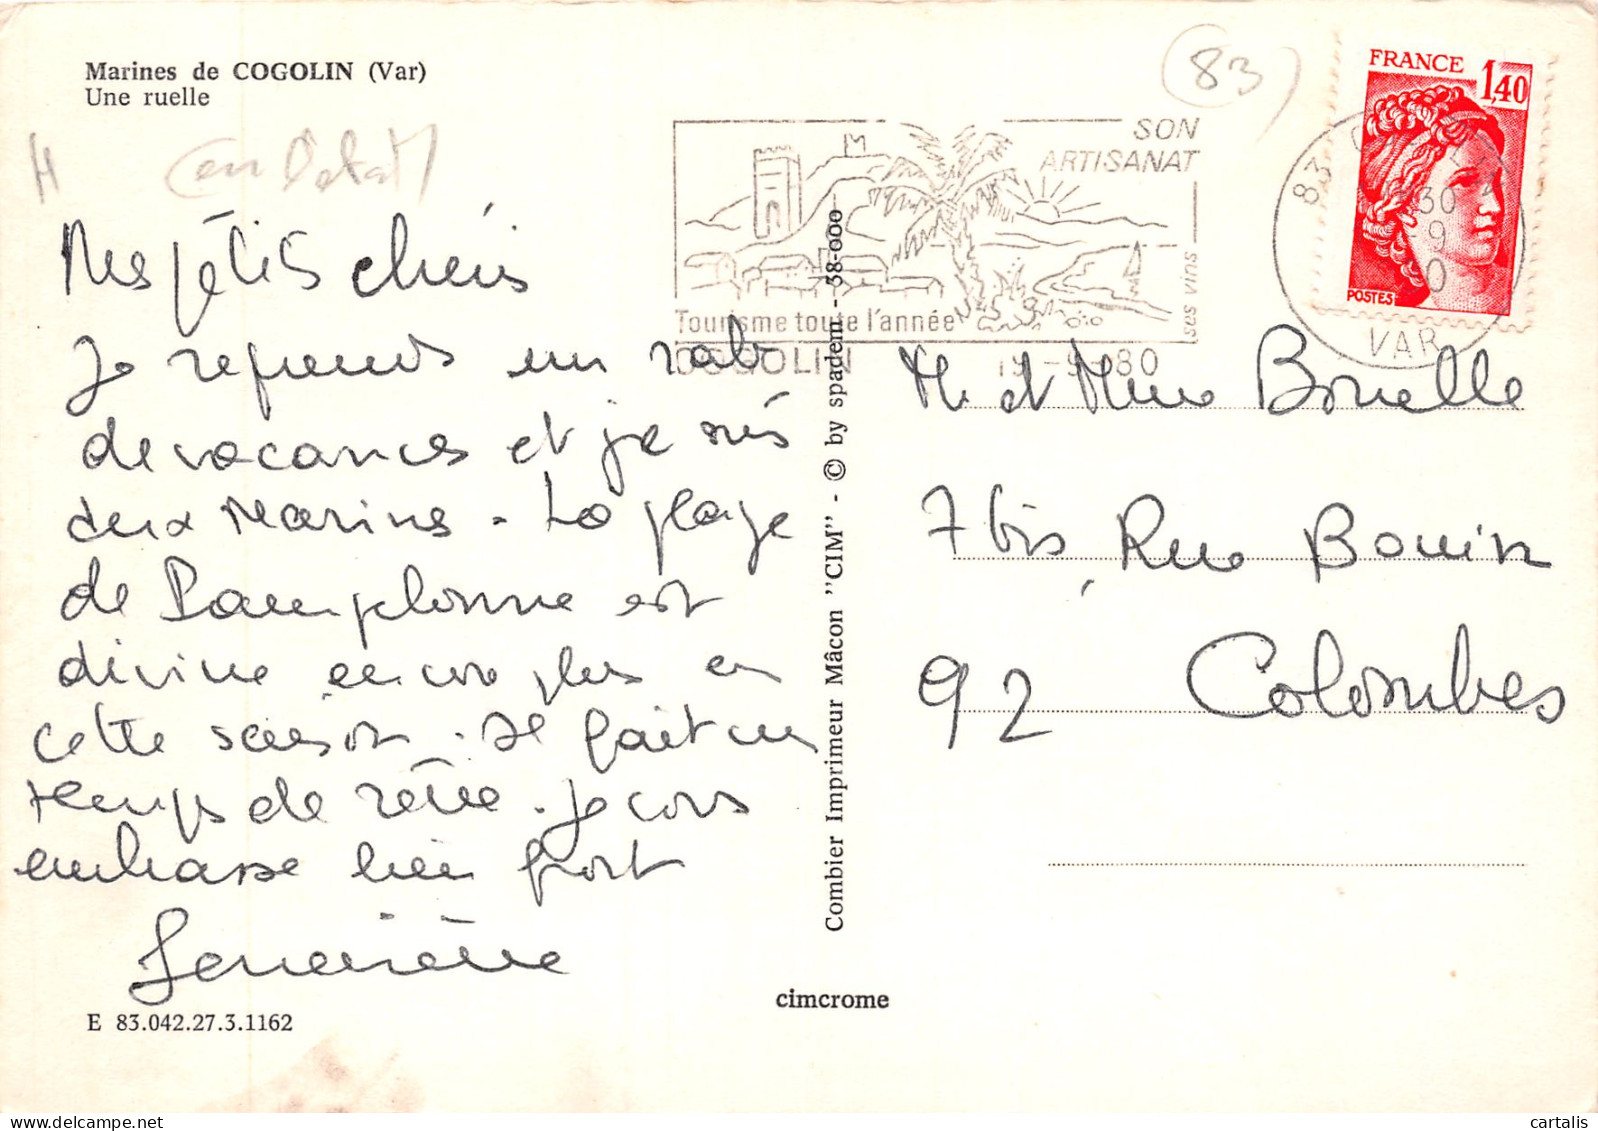 Marines de COGOLIN (Var)
Une ruelle
83
FRANCE
1,40
POSTES
SON
ARTISANAT
ses vins
Tourisme toute l'année
COGOLIN
19-9-80
83
30
9
VAR
Mes petits chéris
Je reprends un rab
de vacances et je suis
aux Marines. La plage
de Pampelonne est
divine encore plus en
cette saison. Il fait un
temps de rêve. Je vous
embrasse bien fort
Geneviève
M. et Mme Bonelle
7 bis, Rue Bouin
92 Colombes
Combier Imprimeur Mâcon "CIM" - © by spadem - 58-000
cimcrome
E 83.042.27.3.1162
cartalis.com